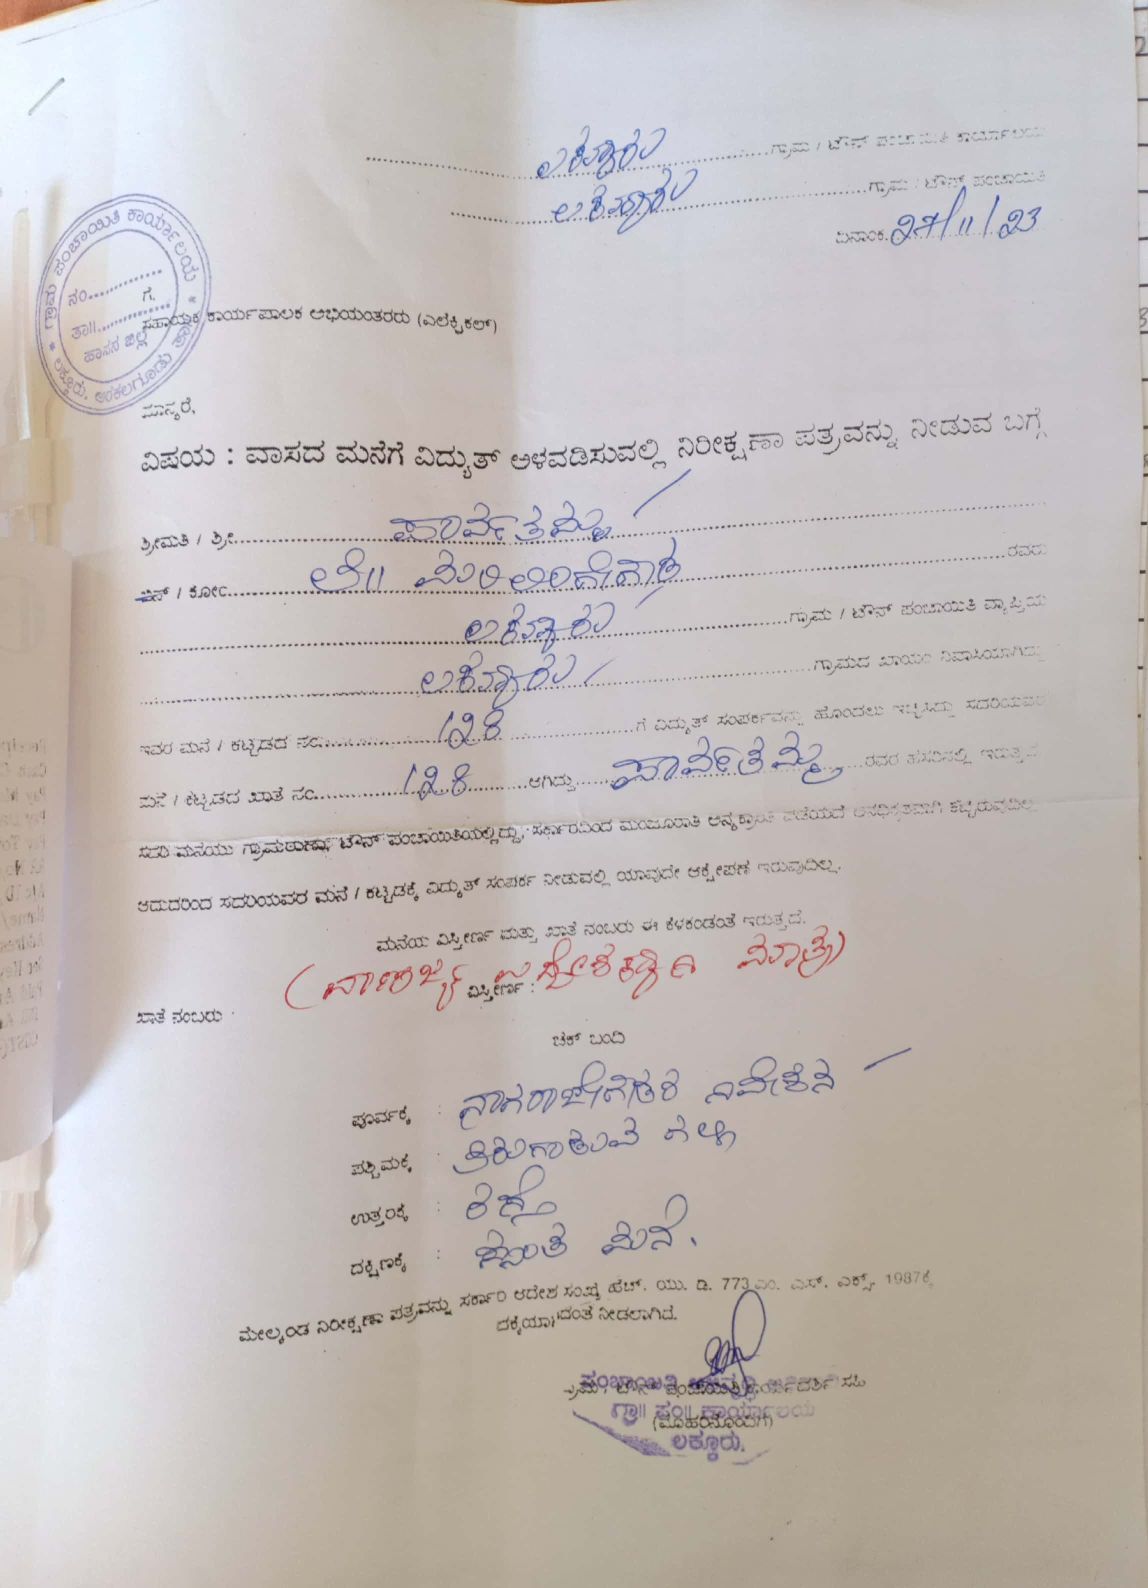 ಲಕ್ಕೂರು ಗ್ರಾಮ / ಟೌನ್ ಪಂಚಾಯಿತಿ ಕಾರ್ಯಾಲಯ
ಲಕ್ಕೂರು ಗ್ರಾಮ / ಟೌನ್ ಪಂಚಾಯಿತಿ
ದಿನಾಂಕ. 27/11/23
ಗ್ರಾಮ ಪಂಚಾಯಿತಿ ಕಾರ್ಯಾಲಯ
ನಂ
ತಾ||
ಹಾಸನ ಜಿಲ್ಲೆ
ಲಕ್ಕೂರು, ಅರಕಲಗೂಡು ತಾ||
ಗೆ,
ಸಹಾಯಕ ಕಾರ್ಯಪಾಲಕ ಅಭಿಯಂತರರು (ಎಲೆಕ್ಟ್ರಿಕಲ್)
ಮಾನ್ಯರೆ,
ವಿಷಯ : ವಾಸದ ಮನೆಗೆ ವಿದ್ಯುತ್ ಅಳವಡಿಸುವಲ್ಲಿ ನಿರೀಕ್ಷಣಾ ಪತ್ರವನ್ನು ನೀಡುವ ಬಗ್ಗೆ
ಶ್ರೀಮತಿ / ಶ್ರೀ ಪಾರ್ವತಮ್ಮ
ಬಿನ್ / ಕೋಂ ಲೇ|| ರವರು
ಲಕ್ಕೂರು ಗ್ರಾಮ / ಟೌನ್ ಪಂಚಾಯಿತಿ ವ್ಯಾಪ್ತಿಯ
ಲಕ್ಕೂರು ಗ್ರಾಮದ ಖಾಯಂ ನಿವಾಸಿಯಾಗಿದ್ದು
ಇವರ ಮನೆ / ಕಟ್ಟಡದ ನಂ. 128 ಗೆ ವಿದ್ಯುತ್ ಸಂಪರ್ಕವನ್ನು ಹೊಂದಲು ಇಚ್ಛಿಸಿದ್ದು ಸದರಿಯವರ
ಮನೆ / ಕಟ್ಟಡದ ಖಾತೆ ನಂ. 128 ಆಗಿದ್ದು ಪಾರ್ವತಮ್ಮ ರವರ ಹೆಸರಿನಲ್ಲಿ ಇರುತ್ತದೆ
ಸದರಿ ಮನೆಯು ಗ್ರಾಮಠಾಣಾ, ಟೌನ್ ಪಂಚಾಯಿತಿಯಲ್ಲಿದ್ದು, ಸರ್ಕಾರದಿಂದ ಮಂಜೂರಾತಿ ಅನ್ಯಕ್ರಾಂತಿ ಪಡೆಯದೆ ಅನಧಿಕೃತವಾಗಿ ಕಟ್ಟಿರುವುದಿಲ್ಲ
ಆದುದರಿಂದ ಸದರಿಯವರ ಮನೆ / ಕಟ್ಟಡಕ್ಕೆ ವಿದ್ಯುತ್ ಸಂಪರ್ಕ ನೀಡುವಲ್ಲಿ ಯಾವುದೇ ಆಕ್ಷೇಪಣೆ ಇರುವುದಿಲ್ಲ.
ಮನೆಯ ವಿಸ್ತೀರ್ಣ ಮತ್ತು ಖಾತೆ ನಂಬರು ಈ ಕೆಳಕಂಡಂತೆ ಇರುತ್ತದೆ.
(ವಾಣಿಜ್ಯ ಉದ್ದೇಶಕ್ಕಾಗಿ ಮಾತ್ರ)
ಖಾತೆ ನಂಬರು : ವಿಸ್ತೀರ್ಣ :
ಚಕ್ ಬಂದಿ
ಪೂರ್ವಕ್ಕೆ : ನಾಗರಾಜೇಗೌಡರ ನಿವೇಶನ
ಪಶ್ಚಿಮಕ್ಕೆ : ತಿರುಗಾಡುವ ಗಲ್ಲಿ
ಉತ್ತರಕ್ಕೆ : ರಸ್ತೆ
ದಕ್ಷಿಣಕ್ಕೆ : ಸ್ವಂತ ಮನೆ.
ಮೇಲ್ಕಂಡ ನಿರೀಕ್ಷಣಾ ಪತ್ರವನ್ನು ಸರ್ಕಾರಿ ಆದೇಶ ಸಂಖ್ಯೆ ಹೆಚ್. ಯು. ಡಿ. 773 ಎಂ. ಎನ್. ಎಕ್ಸ್. 1987ಕ್ಕೆ
ನೀಡಲಾಗಿದೆ.
ಗ್ರಾಮ / ಟೌನ್ ಪಂಚಾಯಿತಿ ಕಾರ್ಯದರ್ಶಿ ಸಹಿ
(ಮೊಹರಿನೊಂದಿಗೆ)
ಪಂಚಾಯಿತಿ ಅಭಿವೃದ್ಧಿ ಅಧಿಕಾರಿ
ಗ್ರಾ|| ಪಂ|| ಕಾರ್ಯಾಲಯ
ಲಕ್ಕೂರು.